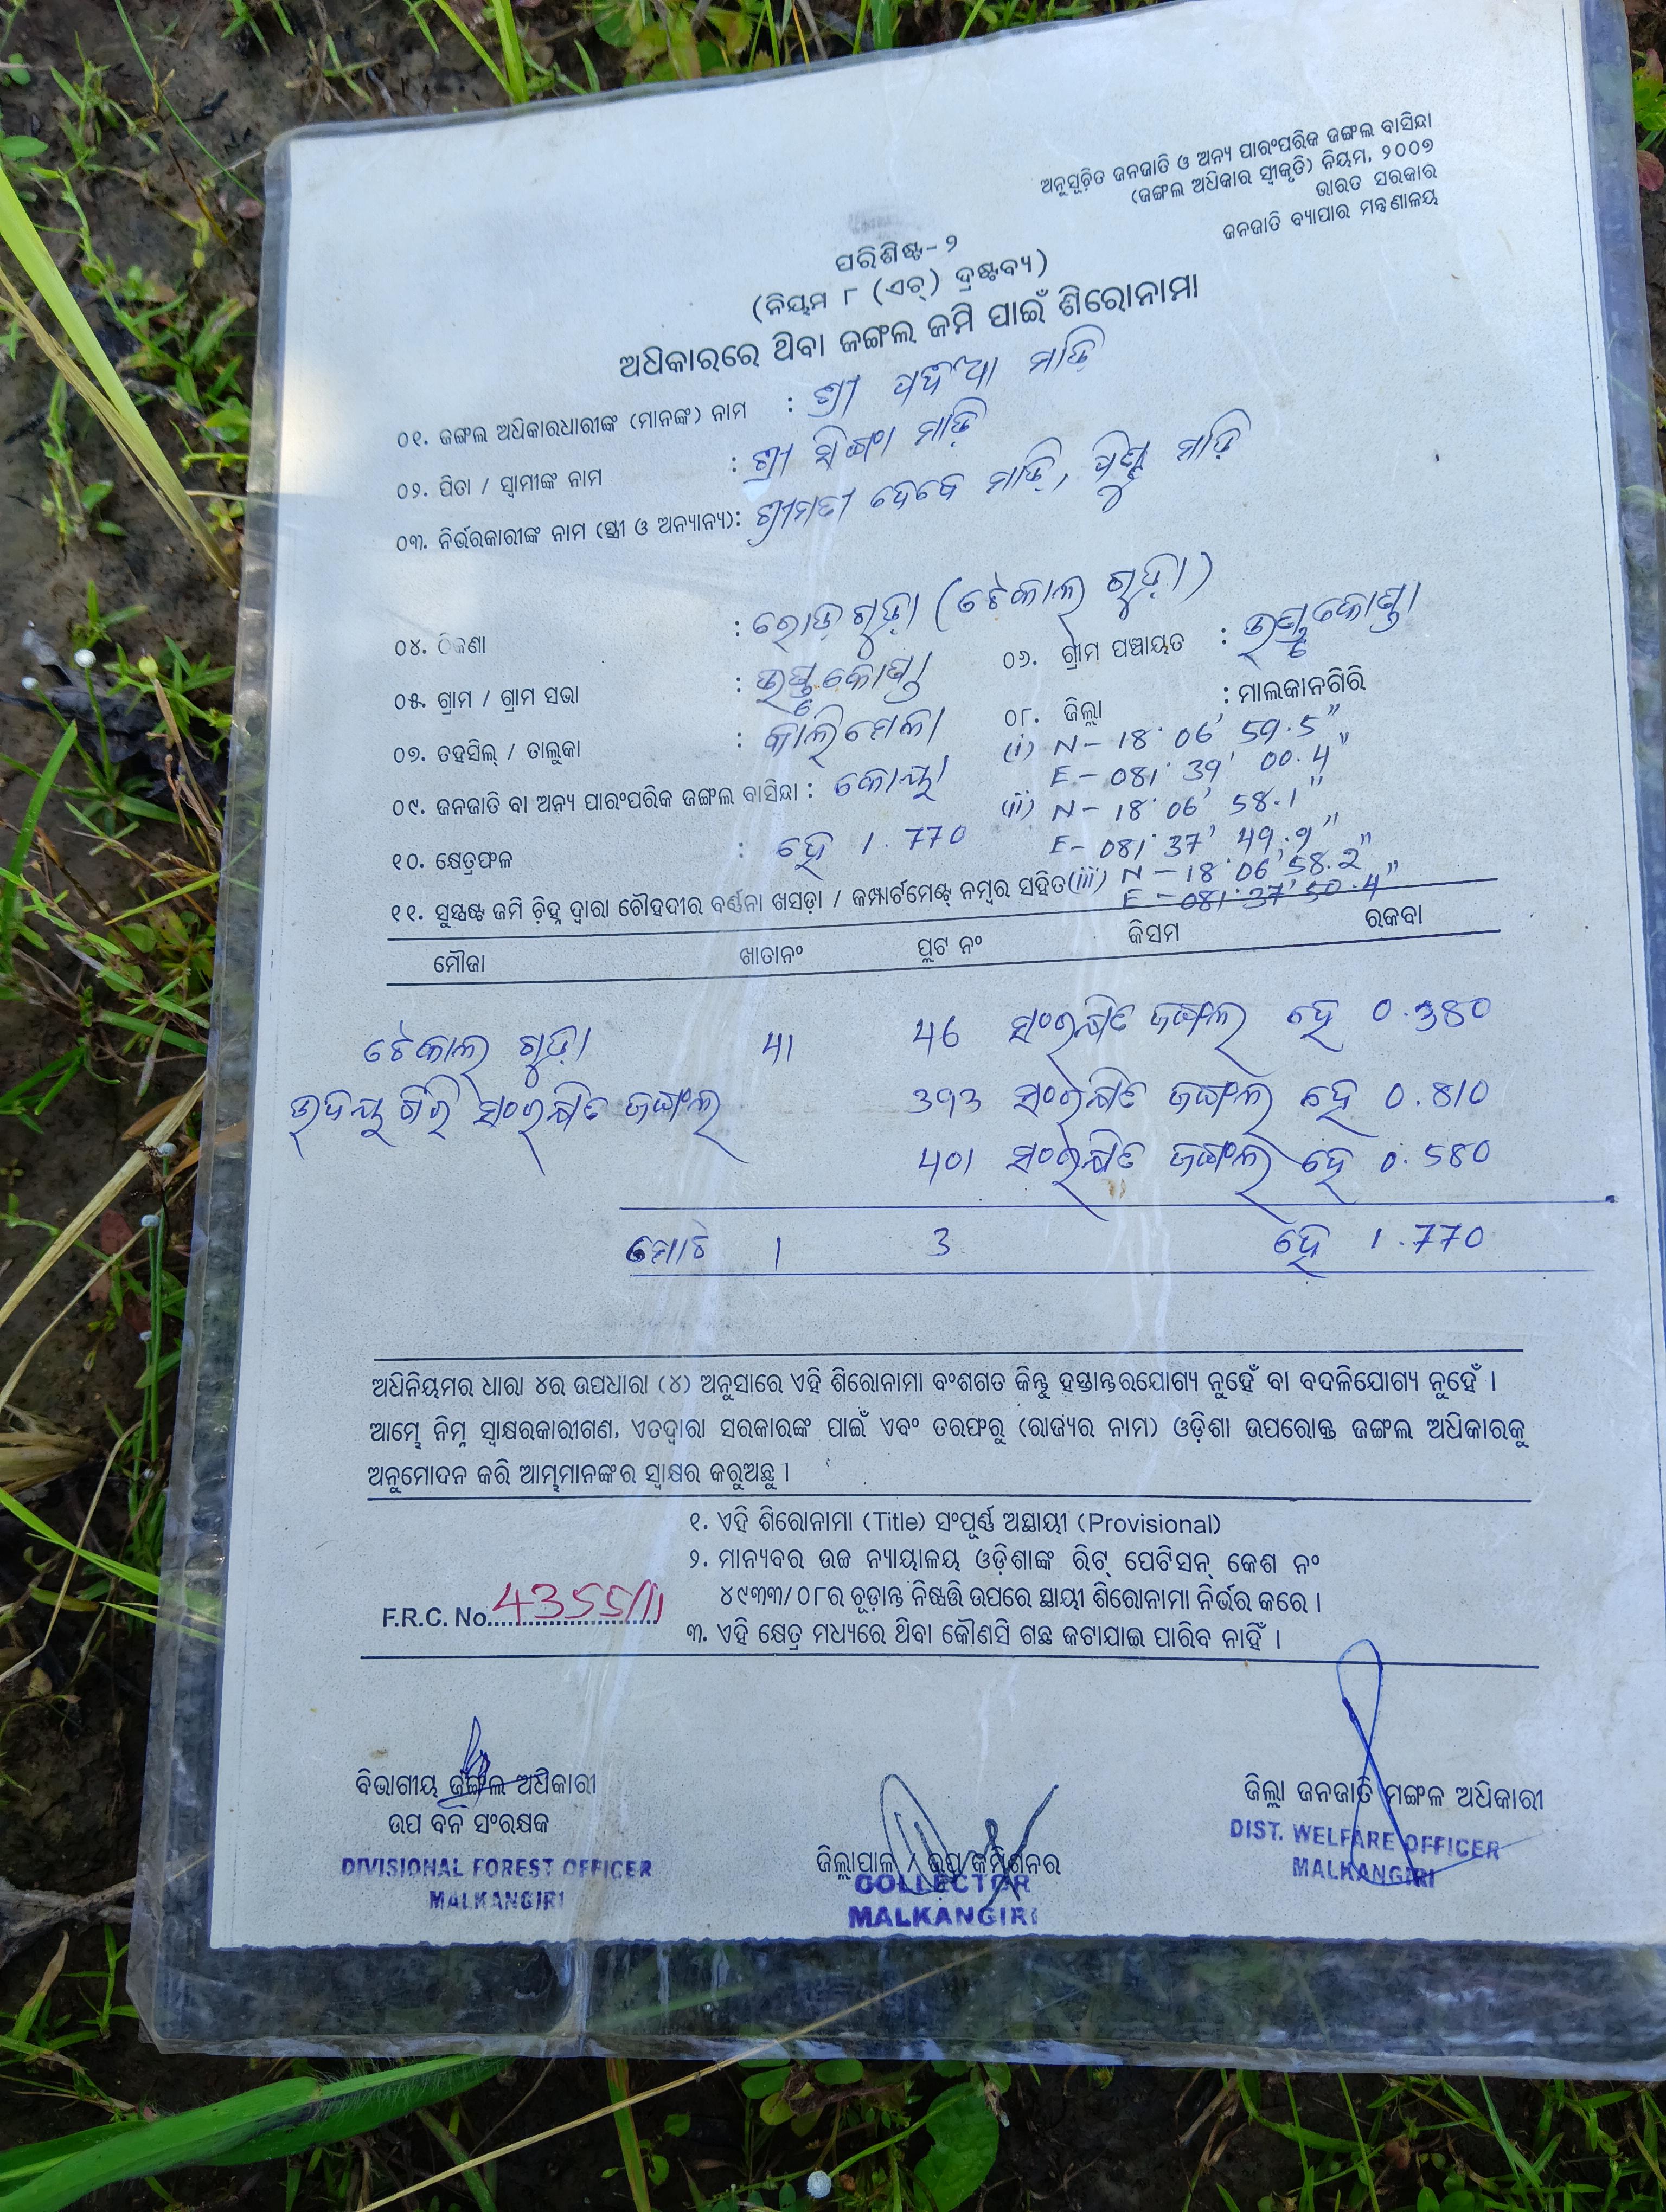 ଅନୁସୂଚିତ ଜନଜାତି ଓ ଅନ୍ୟ ପାରଂପରିକ ଜଙ୍ଗଲ ବାସିନ୍ଦା
(ଜଙ୍ଗଲ ଅଧିକାର ସ୍ୱୀକୃତି) ନିୟମ, ୨୦୦୭
ଭାରତ ସରକାର
ଜନଜାତି ବ୍ୟାପାର ମନ୍ତ୍ରଣାଳୟ
ପରିଶିଷ୍ଟ-୨
(ନିୟମ ୮ (ଏଚ୍) ଦ୍ରଷ୍ଟବ୍ୟ)
ଅଧିକାରରେ ଥିବା ଜଙ୍ଗଲ ଜମି ପାଇଁ ଶିରୋନାମା
୦୧. ଜଙ୍ଗଲ ଅଧିକାରଧାରୀଙ୍କ (ମାନଙ୍କ) ନାମ : ଶ୍ରୀ ମାଡ଼ି
୦୨. ପିତା / ସ୍ୱାମୀଙ୍କ ନାମ : ଶ୍ରୀ ମାଡ଼ି
୦୩. ନିର୍ଭରକାରୀଙ୍କ ନାମ (ସ୍ତ୍ରୀ ଓ ଅନ୍ୟାନ୍ୟ): ଶ୍ରୀମତୀ ଦେବେ ମାଡ଼ି, ମାଡ଼ି
୦୪. ଠିକଣା : ରୋଡ଼ ଗୁଡ଼ା (ଟେକାଲ ଗୁଡ଼ା)
୦୫. ଗ୍ରାମ / ଗ୍ରାମ ସଭା : ୦୬. ଗ୍ରାମ ପଞ୍ଚାୟତ :
୦୭. ତହସିଲ୍ / ତାଲୁକା : କାଲିମେଳା ୦୮. ଜିଲ୍ଲା : ମାଲକାନଗିରି
୦୯. ଜନଜାତି ବା ଅନ୍ୟ ପାରଂପରିକ ଜଙ୍ଗଲ ବାସିନ୍ଦା : କୋୟା
(i) N - 18° 06' 59.5"
E - 081° 39' 00.4"
(ii) N - 18° 06' 58.1"
E - 081° 37' 49.9"
୧୦. କ୍ଷେତ୍ରଫଳ : ହେ 1.770
୧୧. ସୁସ୍ପଷ୍ଟ ଜମି ଚିହ୍ନ ଦ୍ୱାରା ଚୌହଦୀର ବର୍ଣ୍ଣନା ଖସଡ଼ା / କମ୍ପାର୍ଟମେଣ୍ଟ୍ ନମ୍ବର ସହିତ (iii) N - 18° 06' 58.2"
E - 081° 37' 50.4"
ମୌଜା ଖାତାନଂ ପ୍ଲଟ ନଂ କିସମ ରକବା
ଟେକାଲ ଗୁଡ଼ା 41 46 ସଂରକ୍ଷିତ ଜଙ୍ଗଲ ହେ 0.380
ଉଦୟ ଗିରି ସଂରକ୍ଷିତ ଜଙ୍ଗଲ 393 ସଂରକ୍ଷିତ ଜଙ୍ଗଲ ହେ 0.810
401 ସଂରକ୍ଷିତ ଜଙ୍ଗଲ ହେ 0.580
ମୋଟ 1 3 ହେ 1.770
ଅଧିନିୟମର ଧାରା ୪ର ଉପଧାରା (୪) ଅନୁସାରେ ଏହି ଶିରୋନାମା ବଂଶଗତ କିନ୍ତୁ ହସ୍ତାନ୍ତରଯୋଗ୍ୟ ନୁହେଁ ବା ବଦଳିଯୋଗ୍ୟ ନୁହେଁ ।
ଆମ୍ଭେ ନିମ୍ନ ସ୍ୱାକ୍ଷରକାରୀଗଣ, ଏତଦ୍ୱାରା ସରକାରଙ୍କ ପାଇଁ ଏବଂ ତରଫରୁ (ରାଜ୍ୟର ନାମ) ଓଡ଼ିଶା ଉପରୋକ୍ତ ଜଙ୍ଗଲ ଅଧିକାରକୁ
ଅନୁମୋଦନ କରି ଆମ୍ଭମାନଙ୍କର ସ୍ୱାକ୍ଷର କରୁଅଛୁ ।
୧. ଏହି ଶିରୋନାମା (Title) ସଂପୂର୍ଣ୍ଣ ଅସ୍ଥାୟୀ (Provisional)
୨. ମାନ୍ୟବର ଉଚ୍ଚ ନ୍ୟାୟାଳୟ ଓଡ଼ିଶାଙ୍କ ରିଟ୍ ପେଟିସନ୍ କେଶ ନଂ
୪୯୩୩/୦୮ର ଚୂଡ଼ାନ୍ତ ନିଷ୍ପତ୍ତି ଉପରେ ସ୍ଥାୟୀ ଶିରୋନାମା ନିର୍ଭର କରେ ।
F.R.C. No. 4355/11
୩. ଏହି କ୍ଷେତ୍ର ମଧ୍ୟରେ ଥିବା କୌଣସି ଗଛ କଟାଯାଇ ପାରିବ ନାହିଁ ।
ବିଭାଗୀୟ ଜଙ୍ଗଲ ଅଧିକାରୀ
ଉପ ବନ ସଂରକ୍ଷକ
DIVISIONAL FOREST OFFICER
MALKANGIRI
ଜିଲ୍ଲାପାଳ / ଉପ କମିଶନର
COLLECTOR
MALKANGIRI
ଜିଲ୍ଲା ଜନଜାତି ମଙ୍ଗଳ ଅଧିକାରୀ
DIST. WELFARE OFFICER
MALKANGIRI